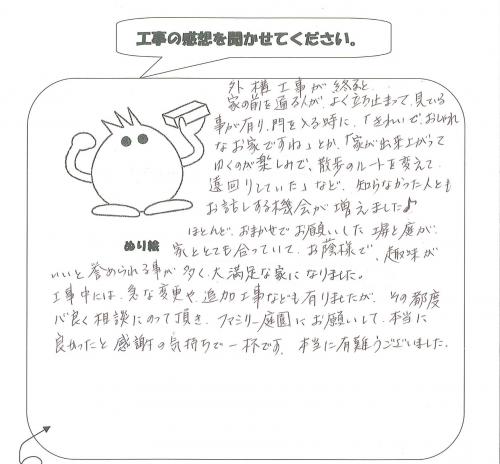 工事の感想を聞かせてください。
外構工事が終ると、
家の前を通る人が、よく立ち止まって、見ている
事が有り、門を入る時に、「きれいで、おしゃれ
なお家ですね」とか、「家が出来上がって
ゆくのが楽しみで、散歩のルートを変えて
遠回りしていた」など、知らなかった人とも
お話しする機会が増えました♪
ほとんど、おまかせでお願いした塀と庭が、
ぬり絵
家ととても合っていて、お蔭様で、趣味が
いいと誉められる事が多く、大満足な家になりました。
工事中には、急な変更や、追加工事なども有りましたが、その都度
心良く相談にのって頂き、ファミリー庭園にお願いして、本当に
良かったと感謝の気持ちで一杯です。本当に有難うございました。